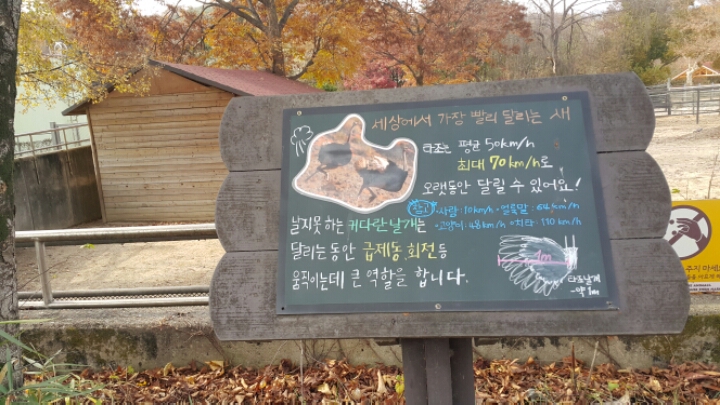 세상에서 가장 빨리 달리는 새
타조는 평균 50km/h
최대 70km/h로
오랫동안 달릴 수 있어요!
참고 •사람: 10km/h •얼룩말: 64km/h
•고양이: 48km/h •치타: 110km/h
날지못하는 커다란날개는
달리는동안 급제동, 회전등
움직이는데 큰 역할을 합니다.
1m
타조날개
-약1m
주지 마세